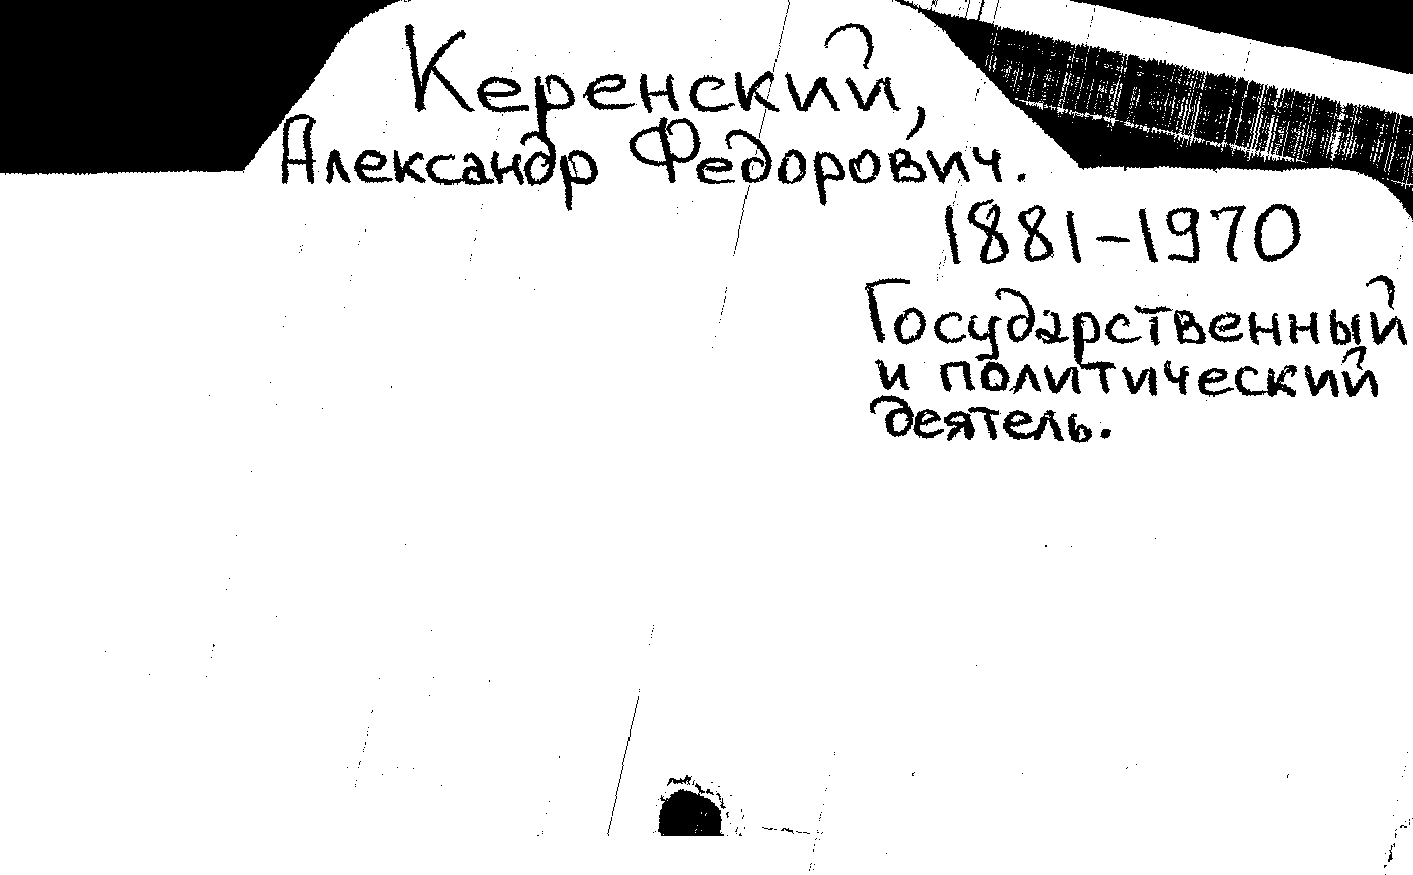 Керенский,
Александр Федорович.
1881-1970
Государственный
и политический
деятель.